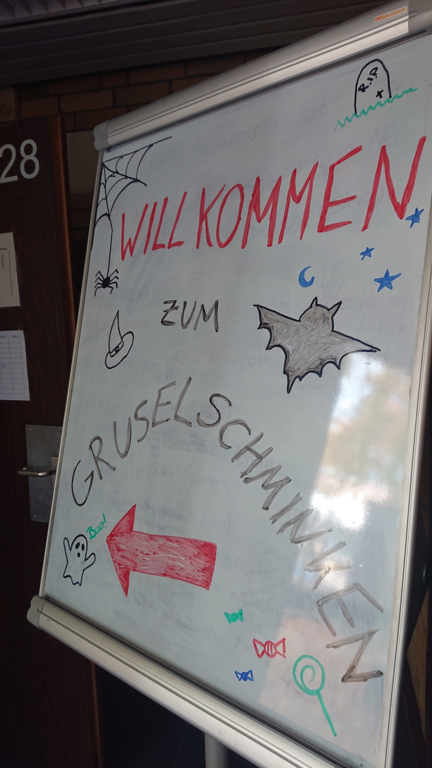 28
R.I.P
WILLKOMMEN
ZUM
GRUSELSCHMINKEN
BOO!